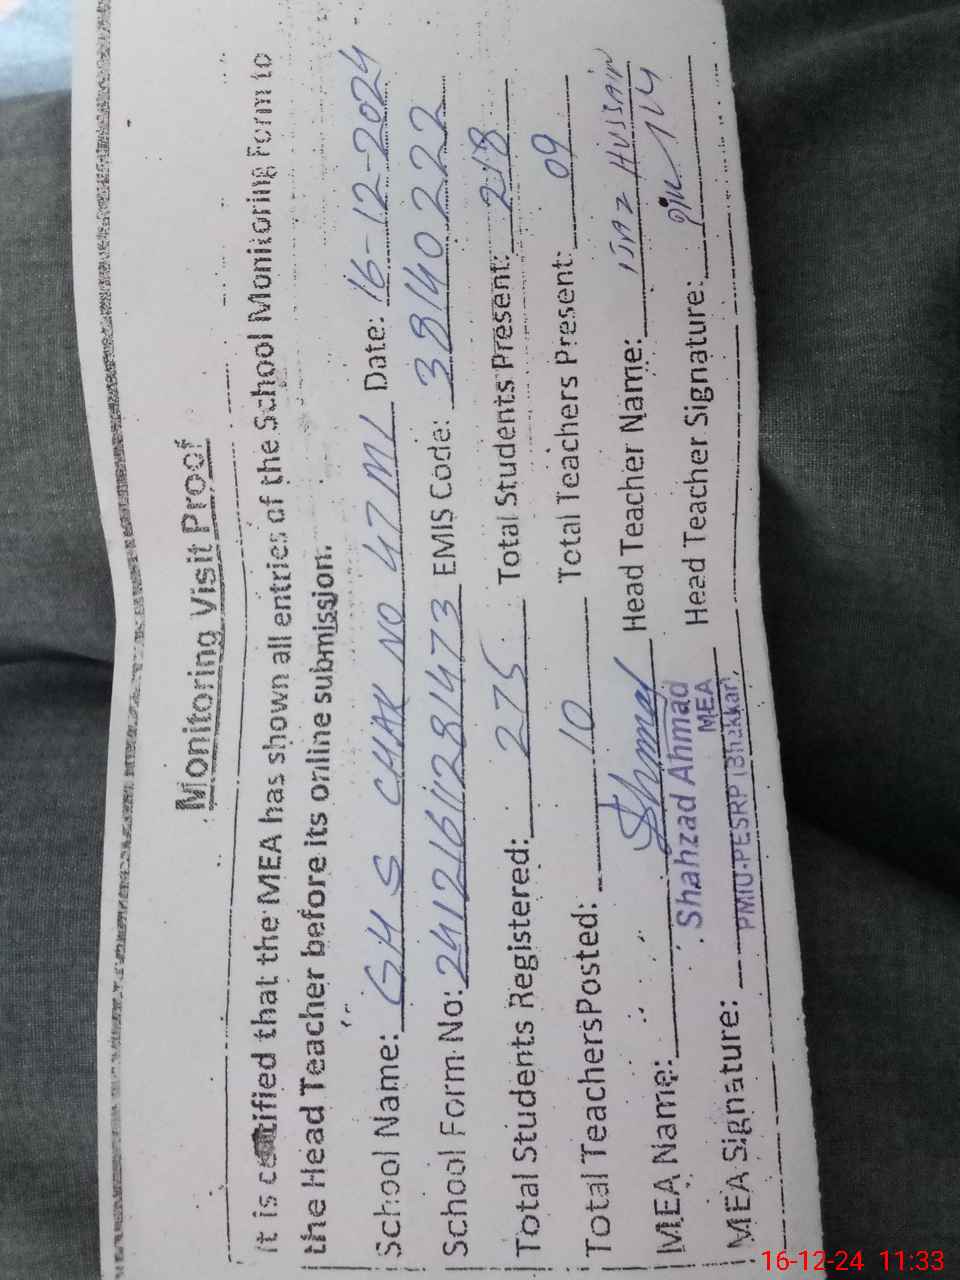 Monitoring Visit Proof
It is certified that the MEA has shown all entries of the School Monitoring Form to
the Head Teacher before its online submission.
School Name: GHS CHAK NO 47 ML Date: 16-12-2024
School Form No: 24121611281473 EMIS Code: 38140222
Total Students Registered: 275 Total Students Present: 218
Total TeachersPosted: 10 Total Teachers Present: 09
MEA Name: Head Teacher Name: IJAZ HUSSAIN
Shahzad Ahmad
MEA
MEA Signature: PMIU-PESRP (Bhakkar) Head Teacher Signature:
16-12-24 11:33